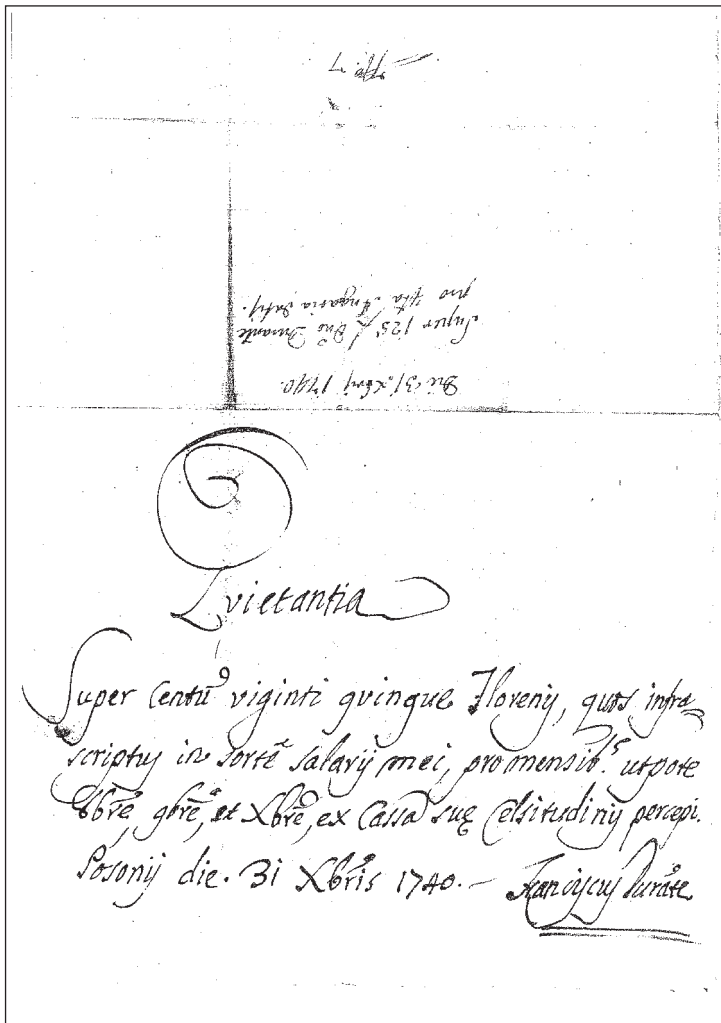 Nro. 7
Die 31 Xbris 1740.
Super 125 f Dno Durante
pro 4ta Angaria
Qvietantia
Super Centũ viginti qvinque Florenis, quos infra-
scriptus in sortẽ salarij mei, pro mensib9. utpote
8bre, 9bre, et Xbre, ex Cassa suę Celsitudinis percepi.
Posonij die. 31 Xbris 1740.– Franciscus Durãte